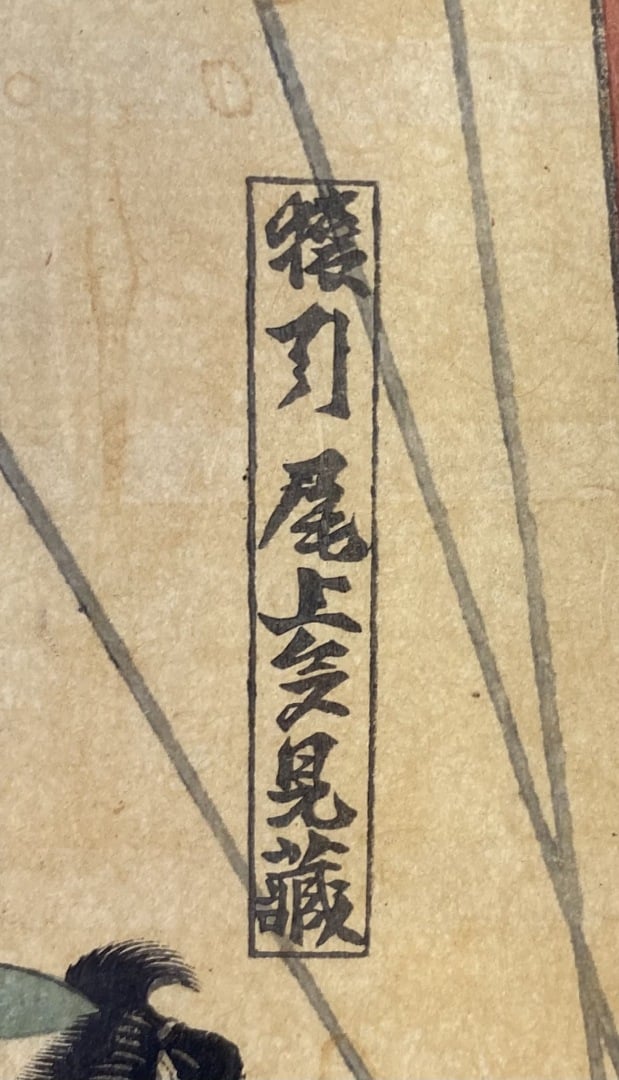 猿引 尾上多見蔵